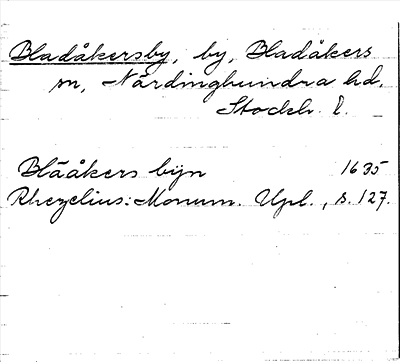 Bladåkersby, by, Bladåkers
sn, Närdinghundra hd,
Stockh. l.
Blååkers bijn 1635
Rhezelius: Monum. Upl., s. 127.